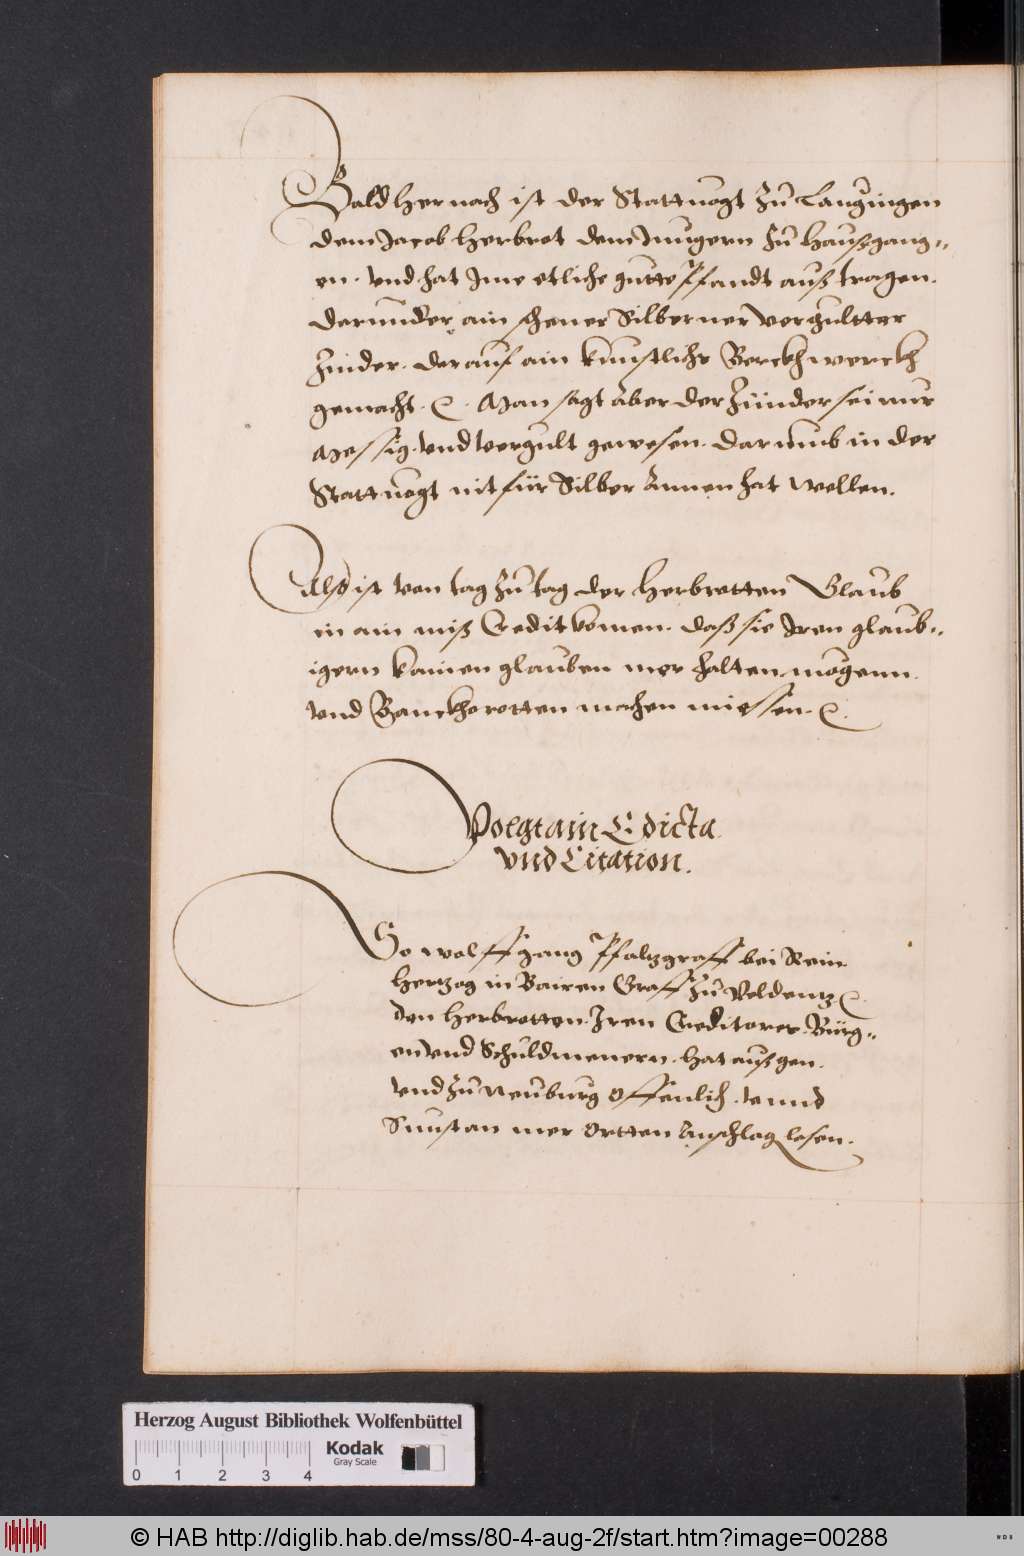 Bald hernach ist der Stattuogt zů Laugingen
dem Jacob Herbrot dem Jnngern zů hauß gang=
en. vnd hat Jme etliche gutte Pfandt auß tragen.
darunder ain schener Silberner vergultter
Zinder. darauf ain kunstlichs Berckhwerckh
gemacht. &. Man sagt aber der Zünder sei nur
Messig vnd vergult gewesen. darumb in der
Stattuogt nit für Silber annen hat wellen.
Also ist von tag zů tag der Herbrotten Glaub
in ain miß Credit komen. daß sie Jren glaub=
igern kainen glauben mer halten mogenn.
vnd Banckhorotten machen miessen. &.
Volgt ain Edicta
vnd Citation.
So wolffgang Pfaltzgraff bei Rein
Hertzog in Bairen Graff zů Veldentz &.
den Herbrotten. Jren Creditores. Bürg=
en vnd Schuldmenern. hat außgen.
vnd zů Neuburg offenlich. vnnd
Sunst an mer Ortten Anschlag lesen.
Herzog August Bibliothek Wolfenbüttel
Kodak
Gray Scale
0 1 2 3 4
© HAB http://diglib.hab.de/mss/80-4-aug-2f/start.htm?image=00288